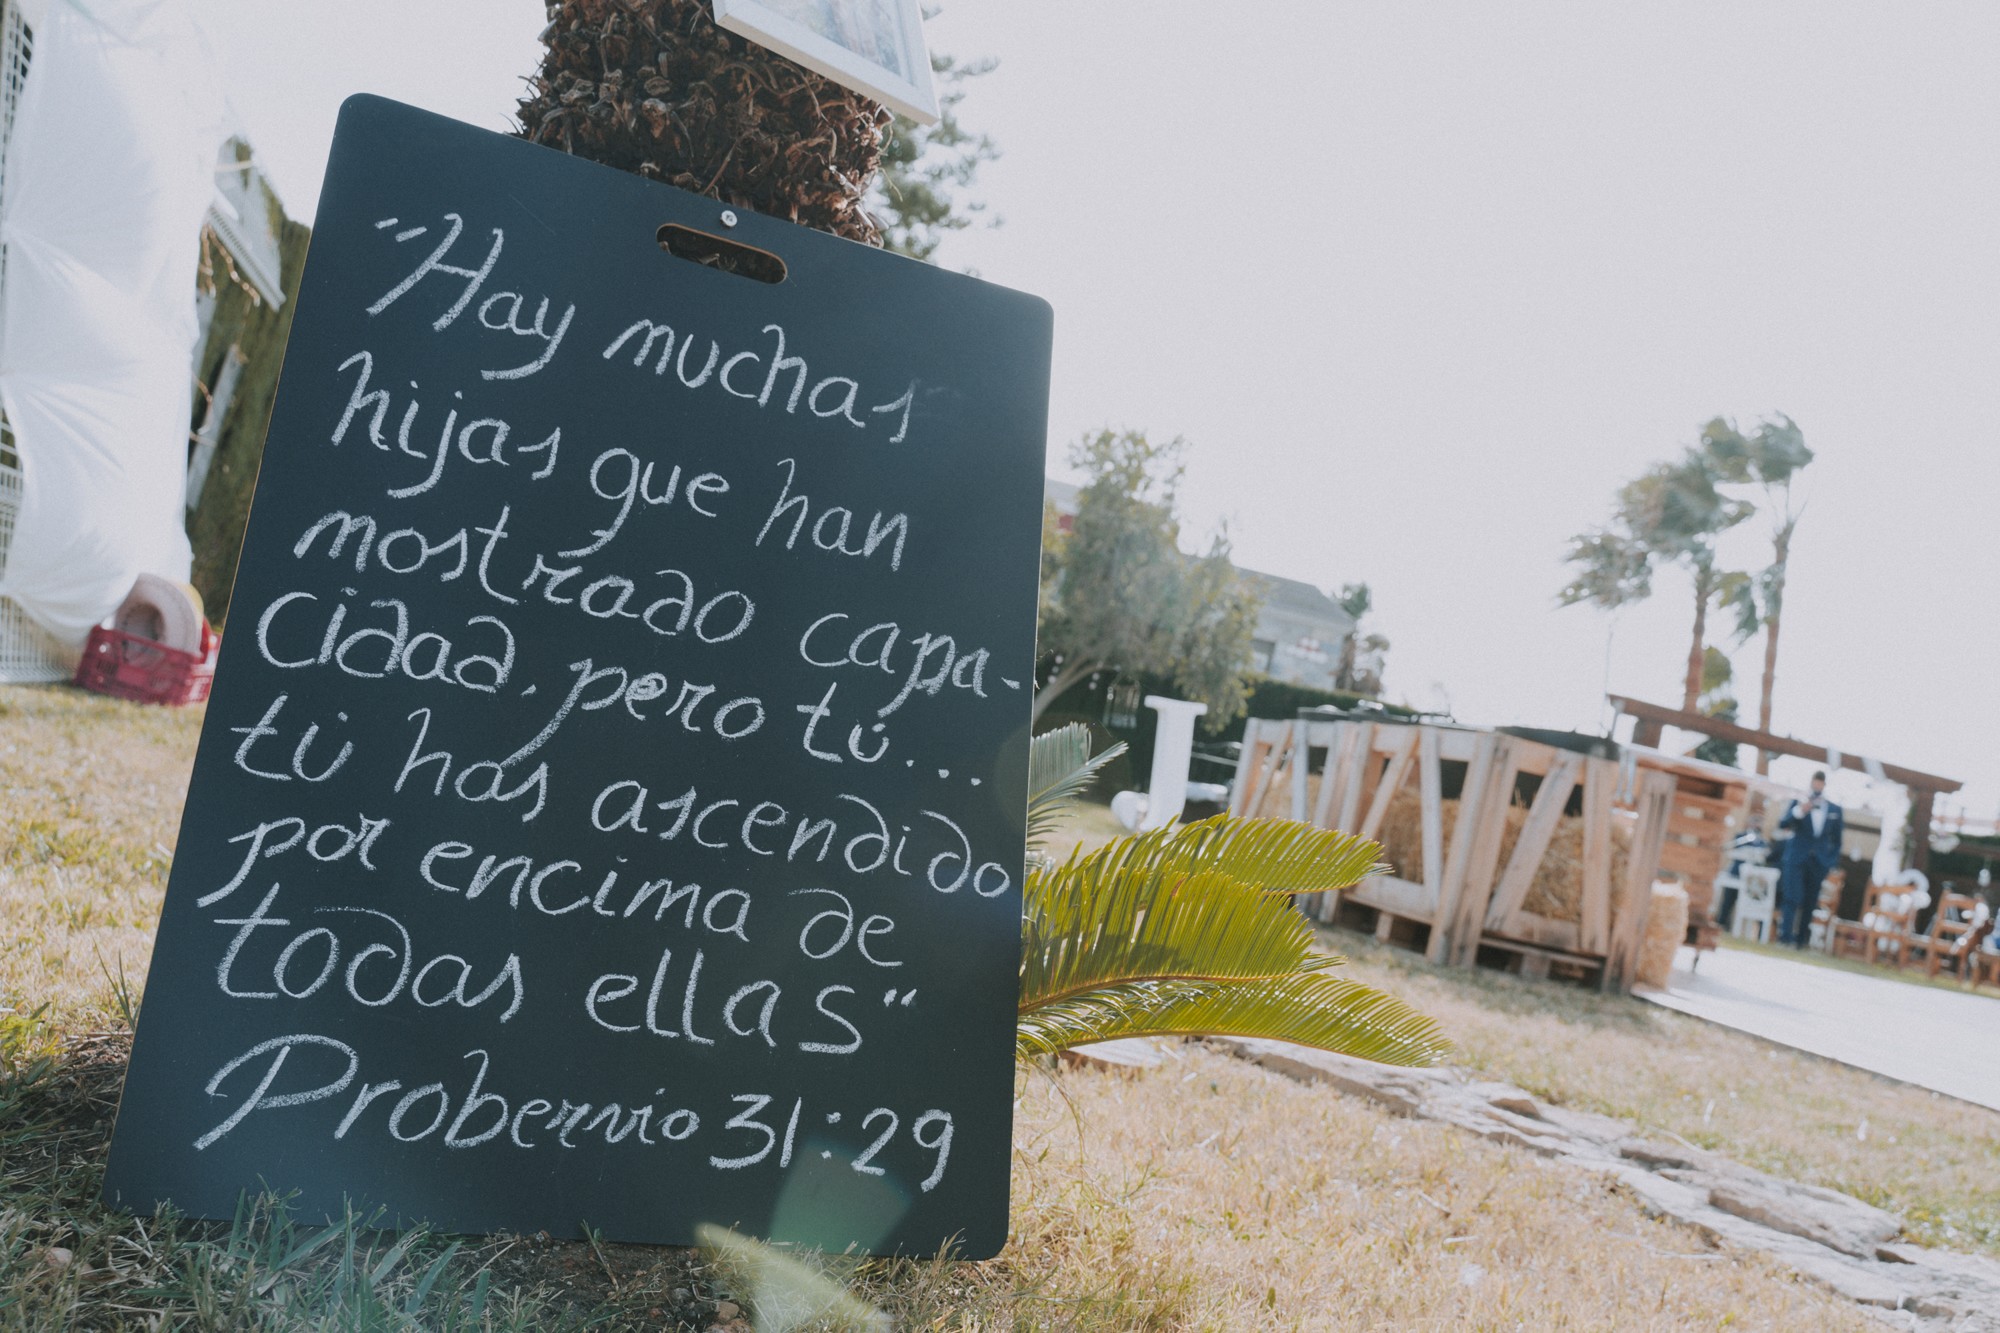 "Hay muchas
hijas que han
mostrado capa-
cidad, pero tú...
tú has ascendido
por encima de
todas ellas"
Probervio 31:29
J